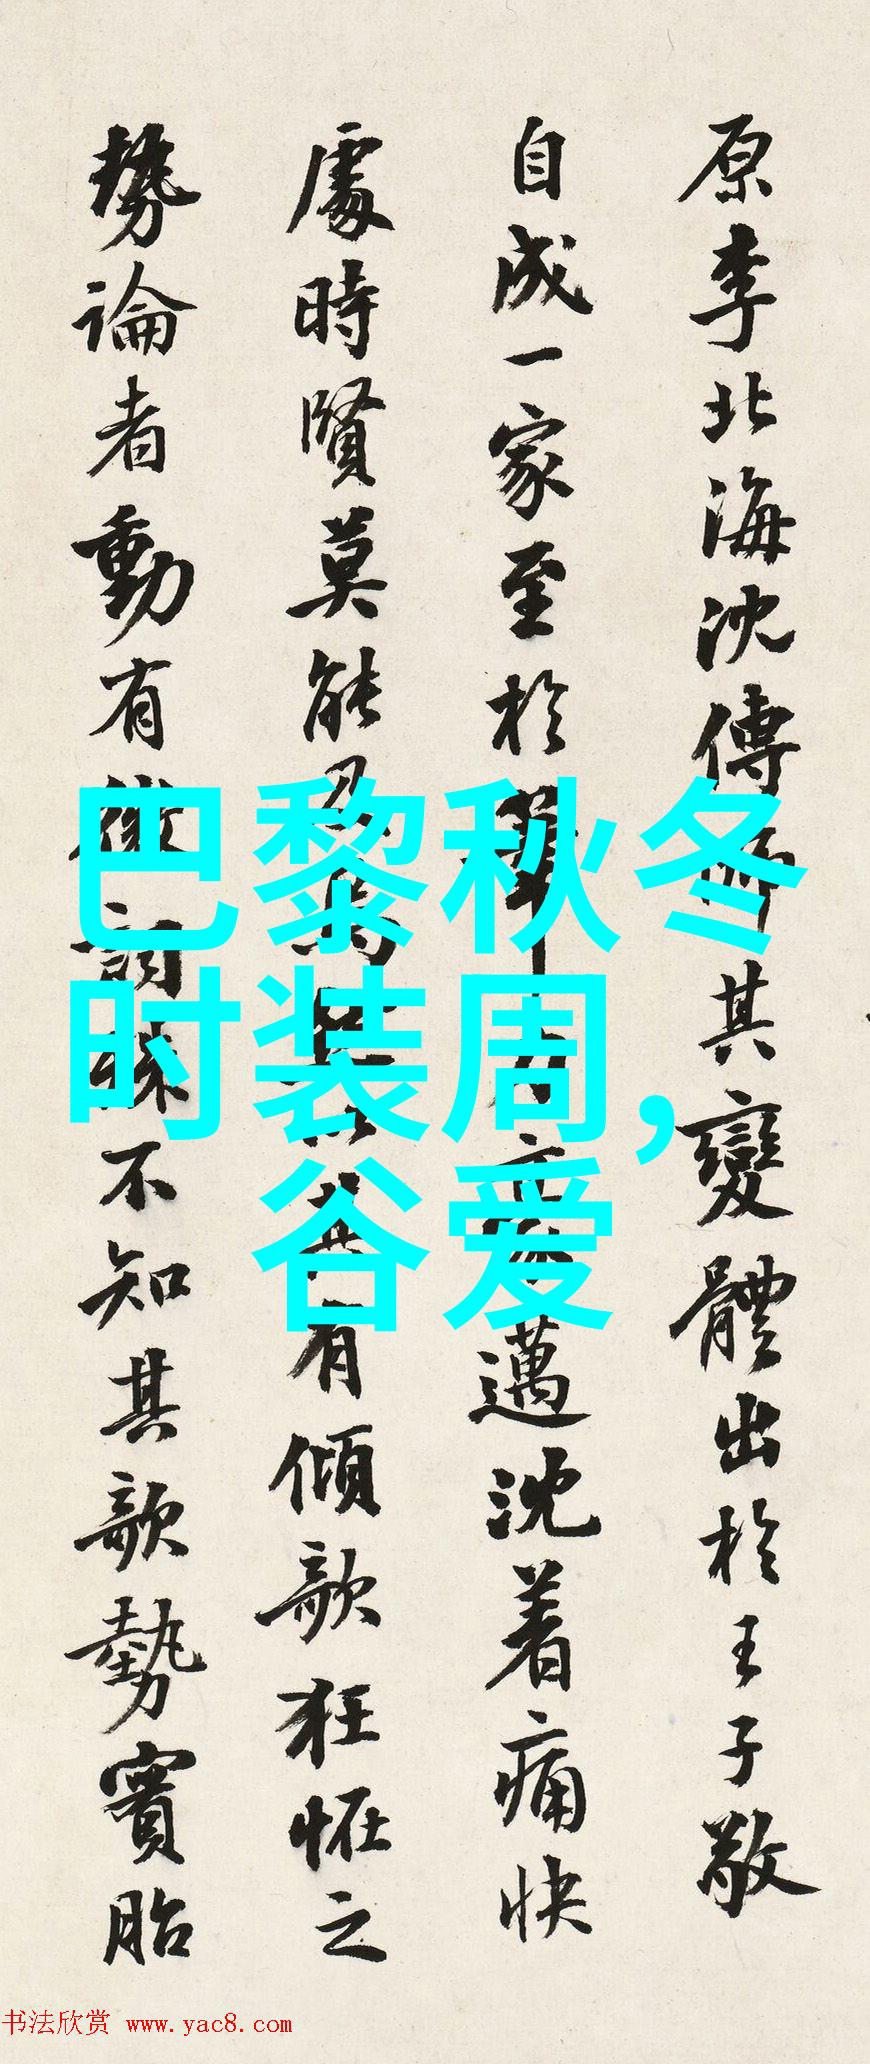 原李北海沈傳師其變體出於王子敬
自成一家至於筆力豪邁沈着痛快
處時賢莫能及焉以其有傾欹狂怪之
勢論者動有微詞殊不知其欹勢實胎
巴黎秋冬
时装周,
谷爱
书法欣赏 www.yac8.com